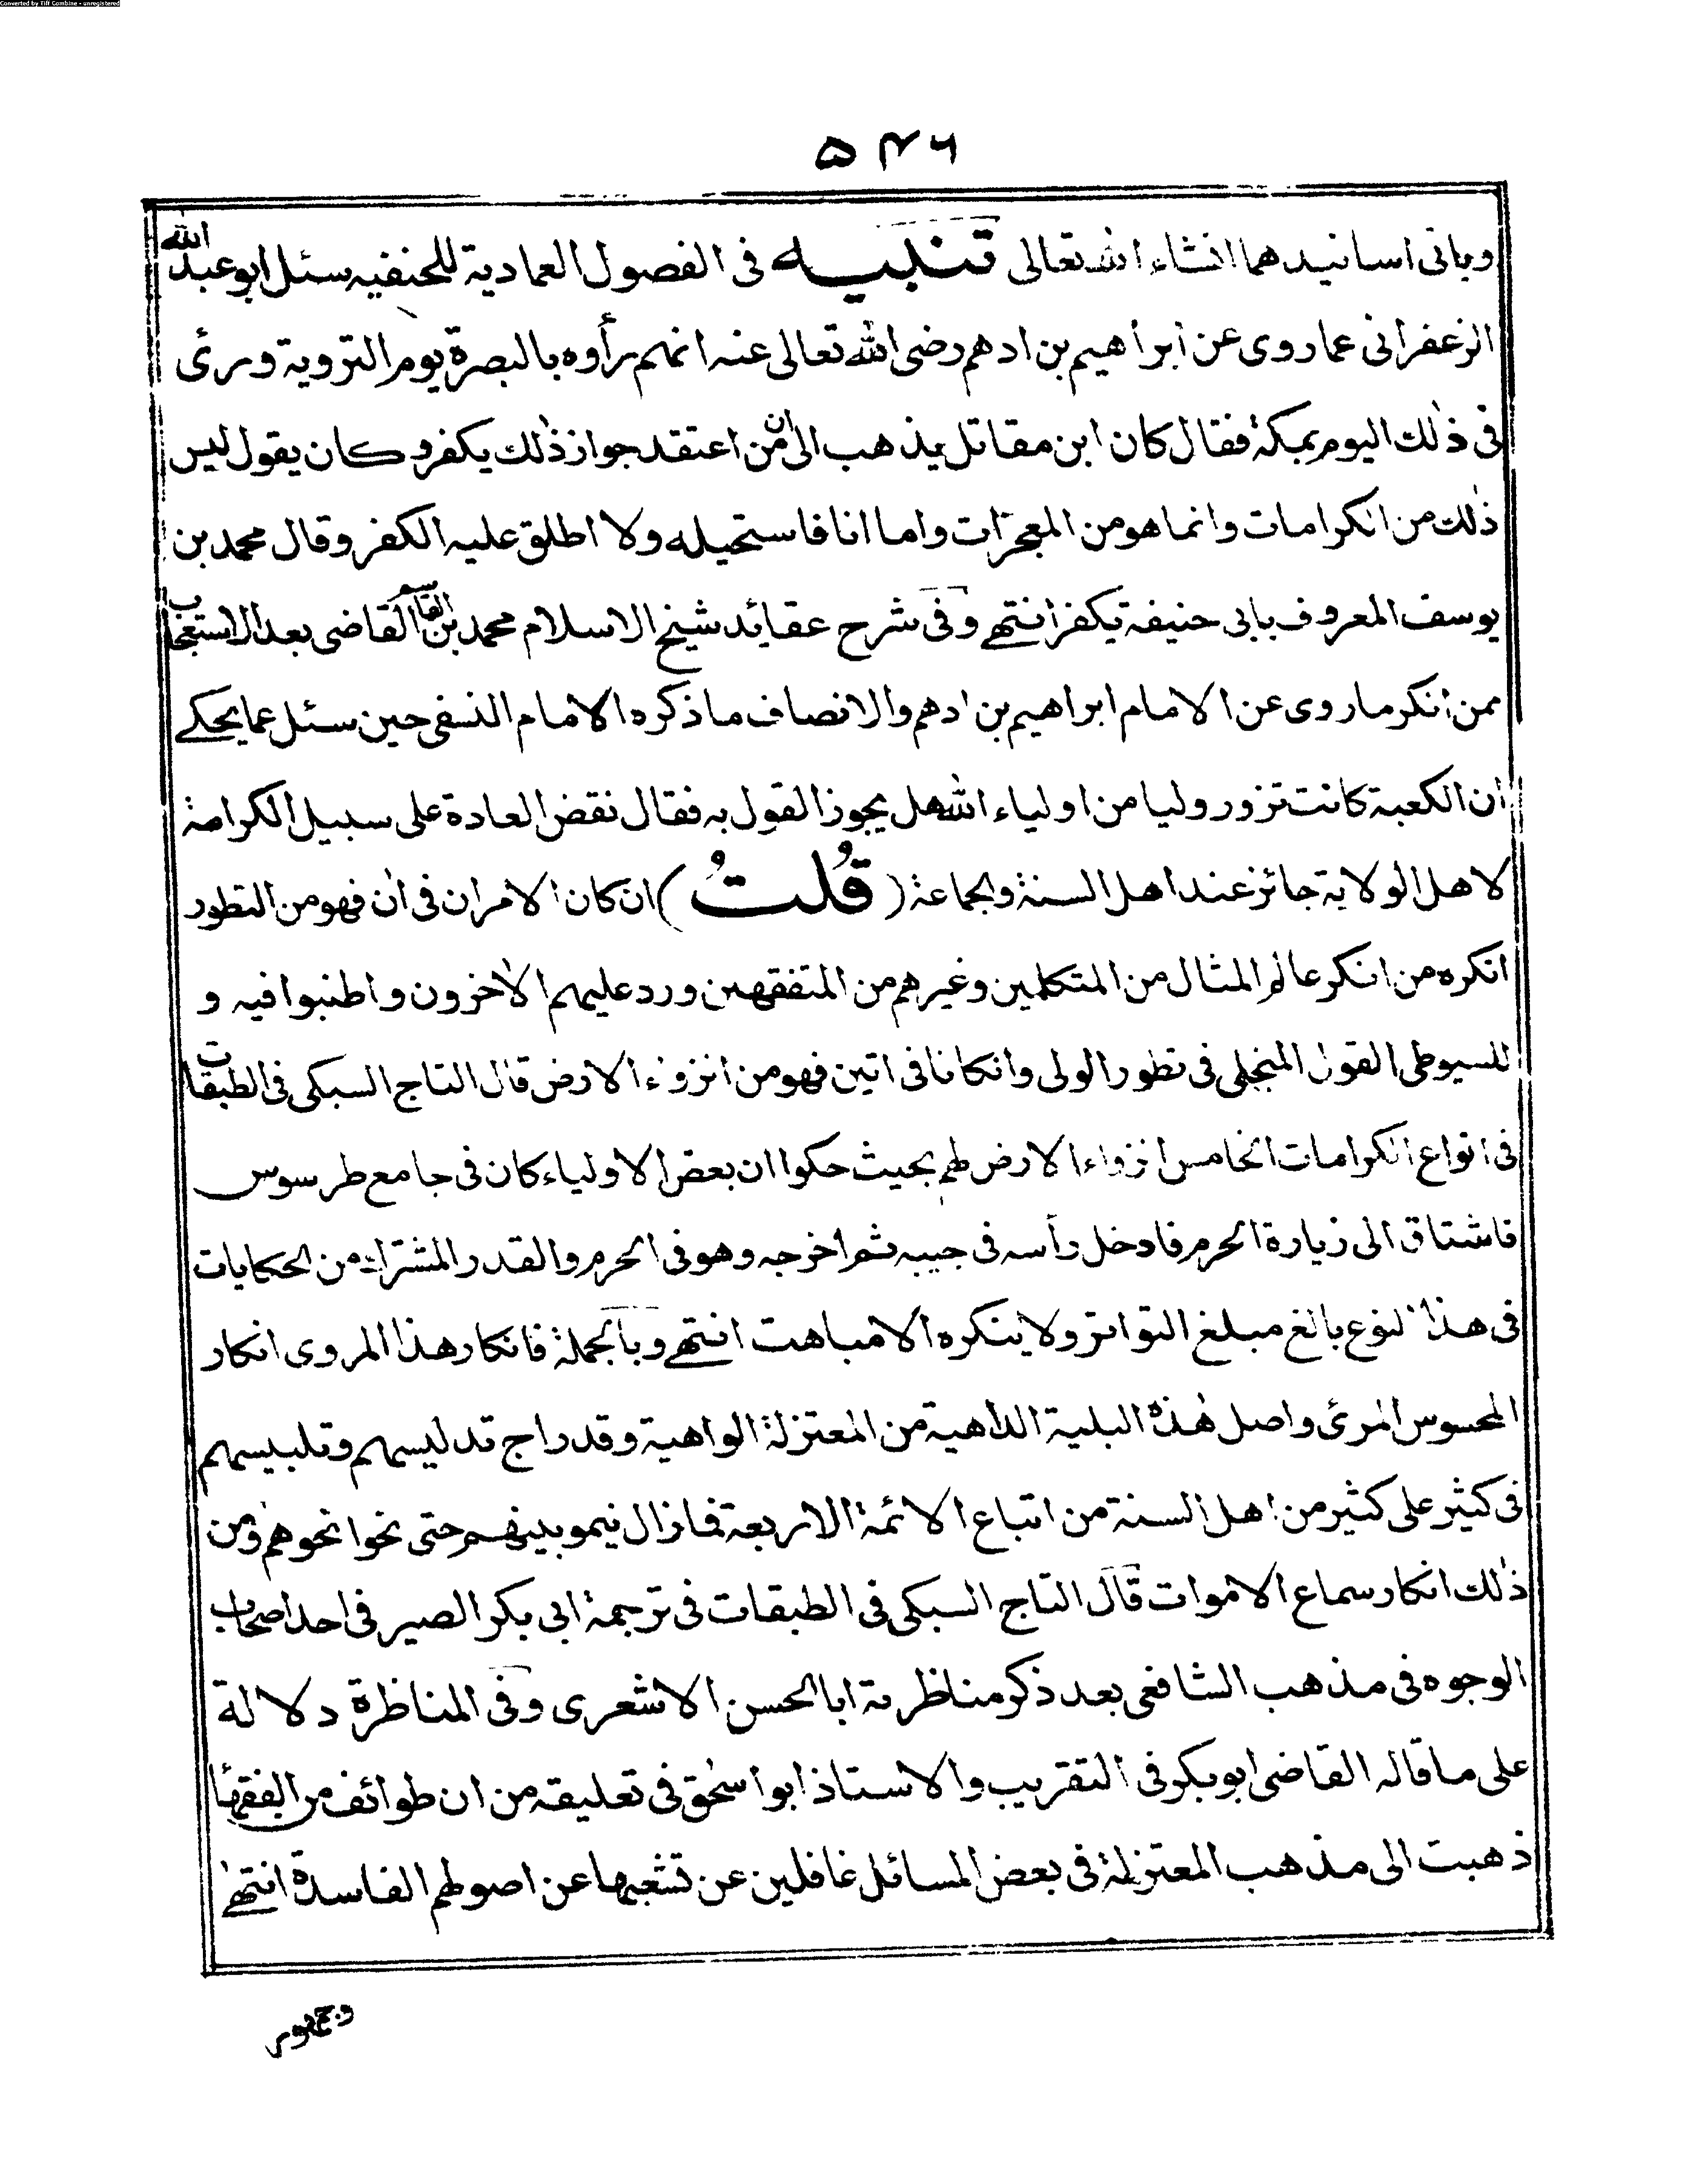 Converted by Tiff Combine - unregistered
۵۴۶
وياتى اسانيدهما انشاء الله تعالى تنبيه فى الفصول العمادية للحنفيه سئل ابو عبد الله
الزعفرانى عما روى عن ابراهيم بن ادهم رضى الله تعالى عنه انهم رأوه بالبصرة يوم التروية ورئى
فى ذلك اليوم بمكة فقال كان ابن مقاتل يذهب الى ان من اعتقد جواز ذلك يكفر وكان يقول ليس
ذلك من الكرامات وانما هو من المعجزات واما انا فاستحيله ولا اطلق عليه الكفر وقال محمد بن
يوسف المعروف بابى حنيفة يكفر انتهے وفى شرح عقائد شيخ الاسلام محمد بن القاسم القاضى بعد الاستعجاب
ممن انكر ما روى عن الامام ابراهيم بن ادهم والانصاف ما ذكره الامام النسفى حين سئل عما يحكے
ان الكعبة كانت تزور وليا من اولياء الله هل يجوز القول به فقال نقض العادة على سبيل الكرامة
لاهل الولاية جائز عند اهل السنة والجماعة (قُلتُ) ان كان الامران فى ان فهو من التطور
انكره من انكر عالم المثال من المتكلمين وغيرهم من المتفقهين ورد عليهم الاخرون واطنبوا فيه و
للسيوطى القول المنجلى فى تطور الولى وانكانا فى اتين فهو من انزواء الارض قال التاج السبكى فى الطبقات
فى انواع الكرامات الخامس انزواء الارض لهم بحيث حكوا ان بعض الاولياء كان فى جامع طرسوس
فاشتاق الى زيارة الحرم فادخل رأسه فى جيبه ثم اخرجه وهو فى الحرم والقدر المشترك من الحكايات
فى هذا النوع بالغ مبلغ التواتر ولا ينكره الا مباهت انتهے وبالجملة فانكار هذا المروى انكار
المحسوس المرئى واصل هذه البلية الداهية من المعتزلة الواهية وقد راج تدليسهم وتلبيسهم
فى كثير على كثير من اهل السنة من اتباع الائمة الاربعة فما زال ينمو بينهم حتى نحوا نحوهم ومن
ذلك انكار سماع الاموات قال التاج السبكى فى الطبقات فى ترجمة ابى بكر الصيرفى احد اصحاب
الوجوه فى مذهب الشافعى بعد ذكر مناظرته ابا الحسن الاشعرى وفى المناظرة دلالة
على ما قاله القاضى ابو بكر فى التقريب والاستاذ ابو اسحق فى تعليقه من ان طوائف من الفقهاء
ذهبت الى مذهب المعتزلة فى بعض المسائل غافلين عن تشعبها عن اصولهم الفاسدة انتهٰى